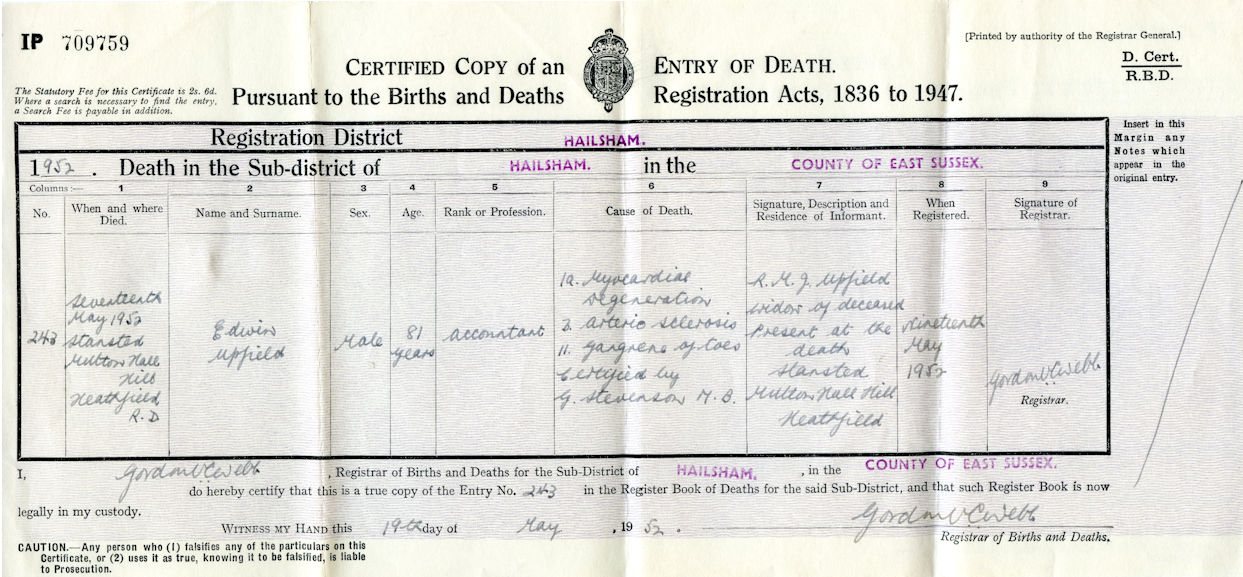 IP 709759
[Printed by authority of the Registrar General.]
D. Cert.
R.B.D.
CERTIFIED COPY of an ENTRY OF DEATH.
The Statutory Fee for this Certificate is 2s. 6d.
Where a search is necessary to find the entry,
a Search Fee is payable in addition.
Pursuant to the Births and Deaths Registration Acts, 1836 to 1947.
Insert in this
Margin any
Notes which
appear in the
original entry.
Registration District HAILSHAM.
1952. Death in the Sub-district of HAILSHAM. in the COUNTY OF EAST SUSSEX.
Columns :— 1 2 3 4 5 6 7 8 9
No.
When and where
Died.
Name and Surname.
Sex.
Age.
Rank or Profession.
Cause of Death.
Signature, Description and
Residence of Informant.
When
Registered.
Signature of
Registrar.
243
Seventeenth
May 1952
Stansted
Mutton Hall
Hill
Heathfield
R.D
Edwin
Upfield
Male
81
years
Accountant
1a. Myocardial
Degeneration
Arterio Sclerosis
11. Gangrene of Toes
Certified by
G. Stevenson M.B.
R. M. J. Upfield
Widow of deceased
Present at the
death
Stansted
Mutton Hall Hill
Heathfield
Nineteenth
May
1952
Gordon V.C. Webb
Registrar.
I, Gordon V.C. Webb, Registrar of Births and Deaths for the Sub-District of HAILSHAM. , in the COUNTY OF EAST SUSSEX.
do hereby certify that this is a true copy of the Entry No. 243 in the Register Book of Deaths for the said Sub-District, and that such Register Book is now
legally in my custody.
WITNESS MY HAND this 19th day of May, 1952.
Gordon V.C. Webb
Registrar of Births and Deaths.
CAUTION.—Any person who (1) falsifies any of the particulars on this
Certificate, or (2) uses it as true, knowing it to be falsified, is liable
to Prosecution.